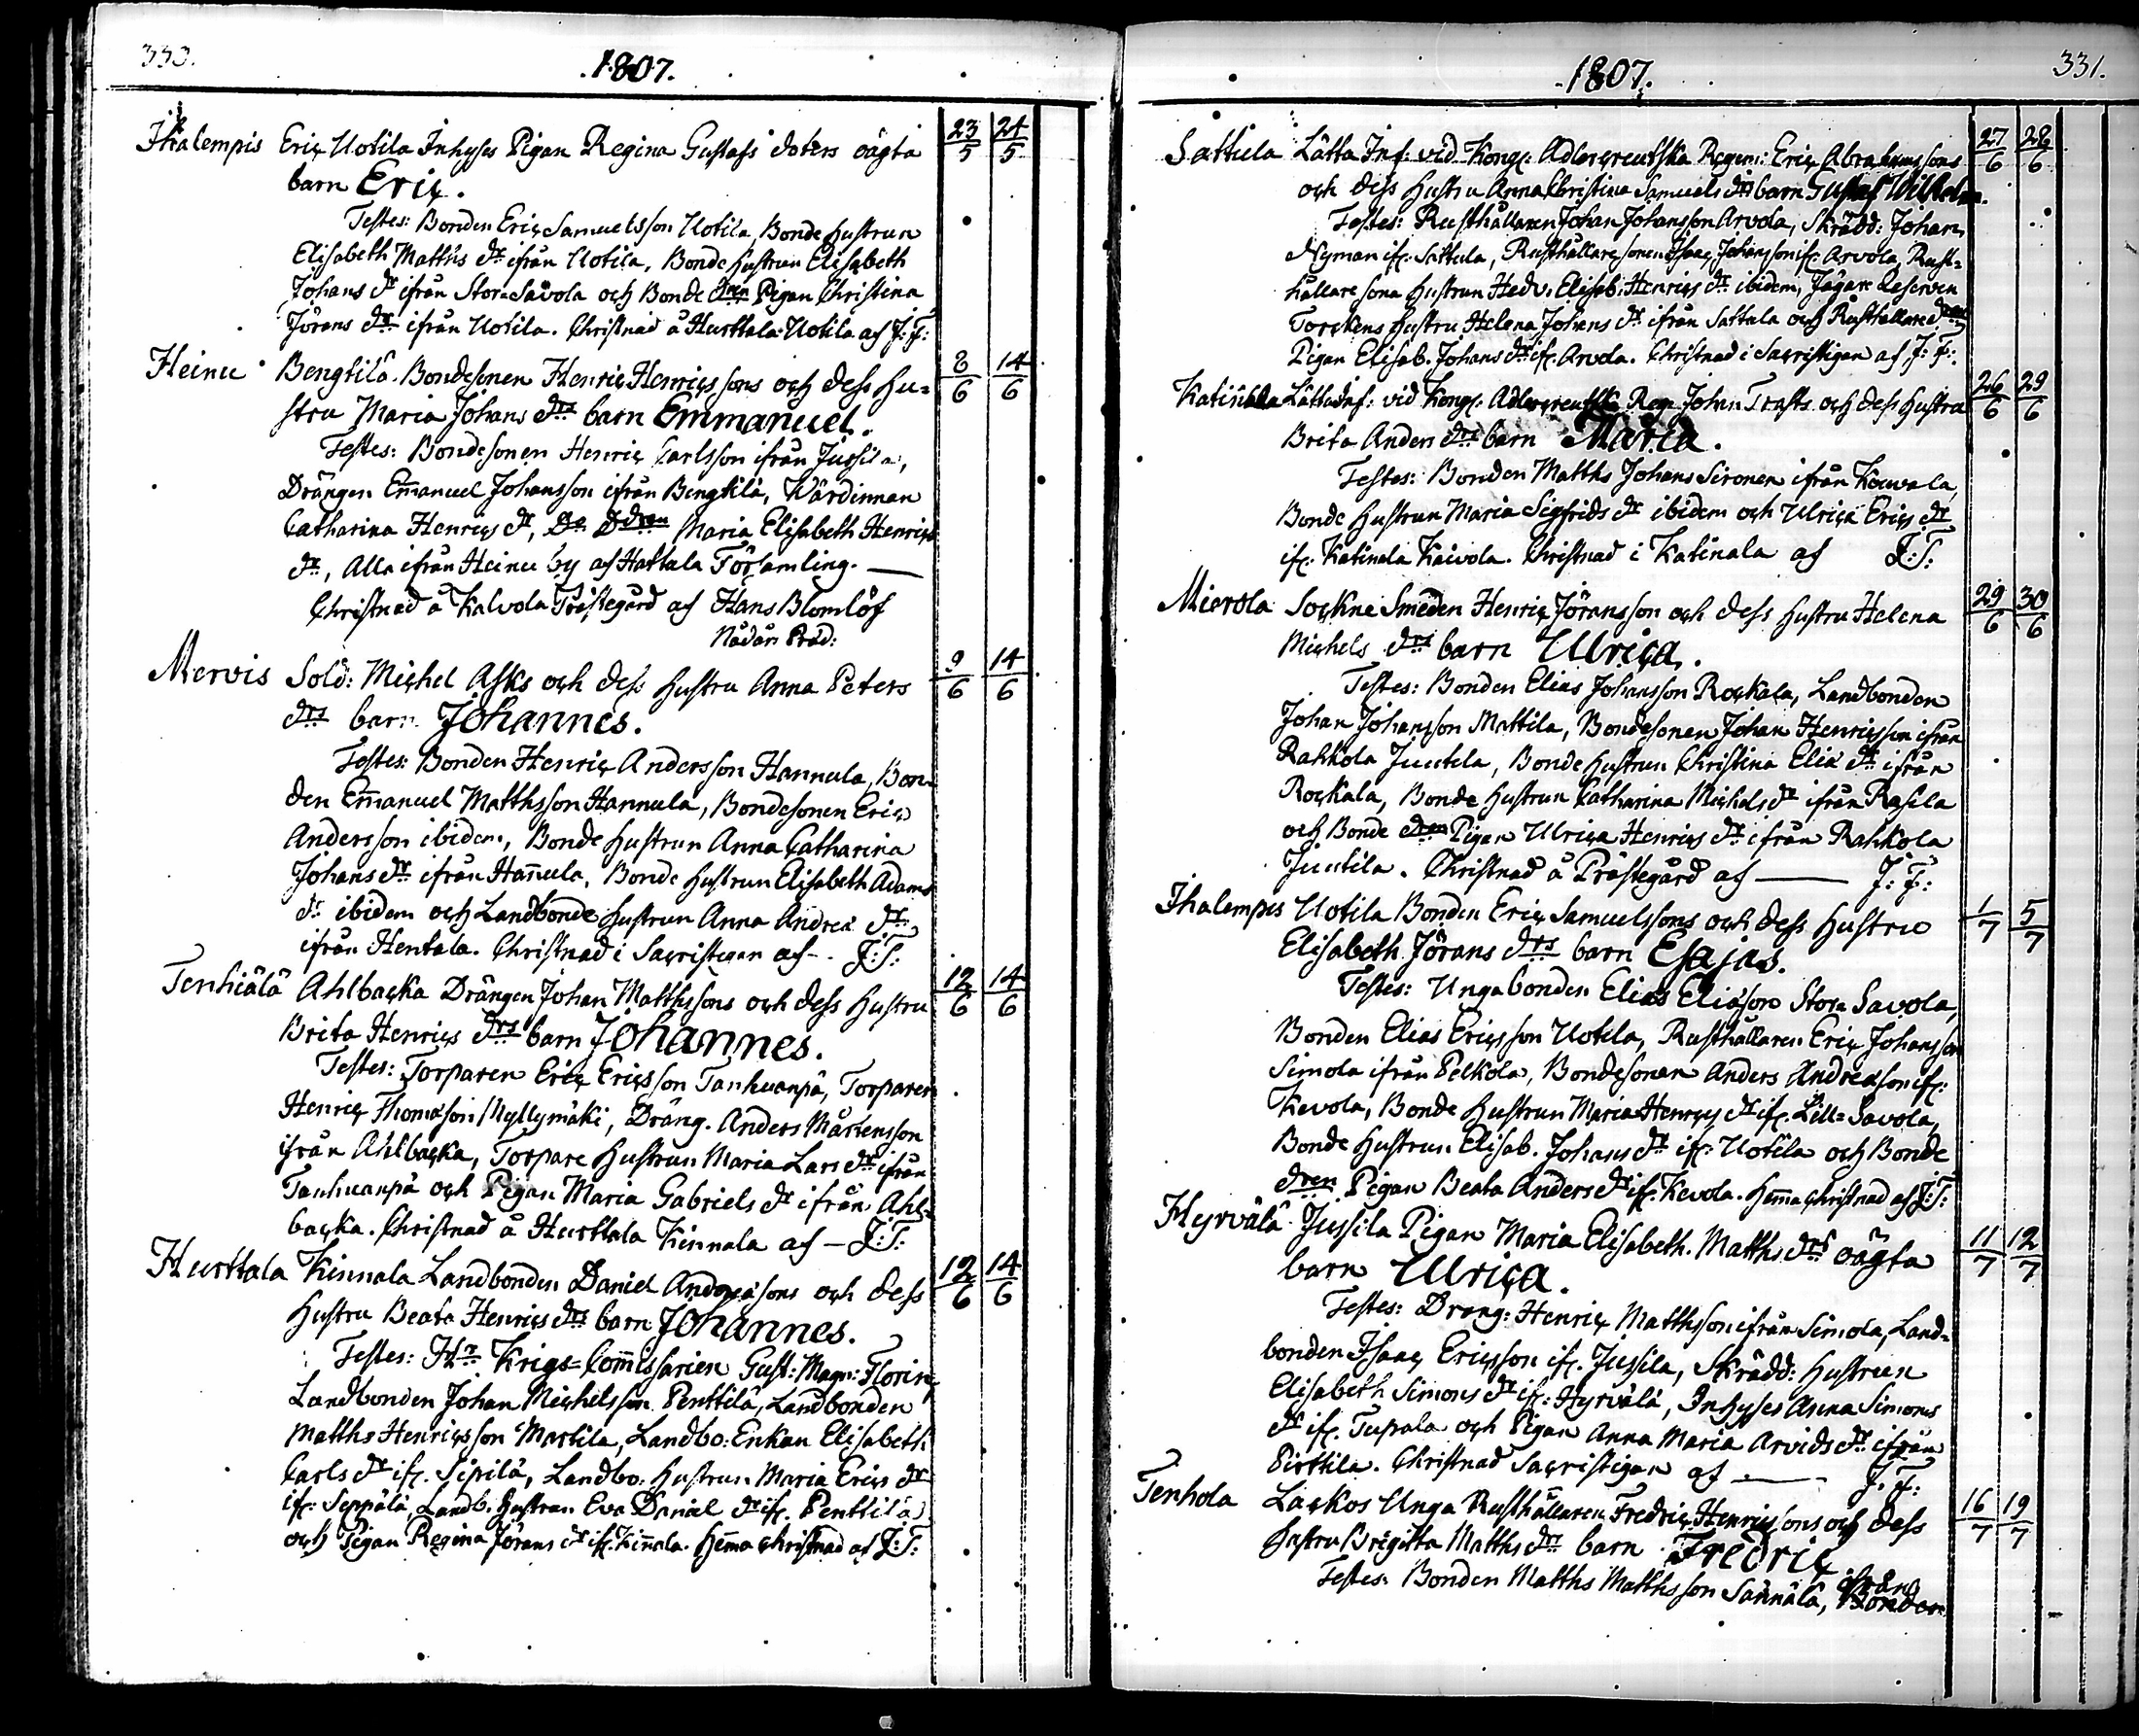 333.
1807.
Ihalempis Eric Uotila Inhyses Pigan Regina Gustafs doters oägta 23/5 24/5
barn Eric.
Testes: Bonden Eric Samuelsson Uotila, Bonde hustrun
Elisabeth Matths dr ifrån Uotila, Bonde hustrun Elisabeth
Johans dr ifrån Stor-Savola och Bonde dren Pigan Christina
Jörans dr ifrån Uotila. Christnad å Hurttala Uotila af J: F:
Heinu Bengtilä Bondesonen Henric Henricssons och dess hu= 8/6 14/6
stru Maria Johans drs barn Emmanuel.
Testes: Bondesonen Henric Carlsson ifrån Jussila,
Drängen Emanuel Johansson ifrån Bengtilä, Wärdinnan
Catharina Henrics dr, Maria Elisabeth Henrics
dr, Alla ifrån Heinu by af Hattula Församling.
Christnad å Kalvola Prästegård af Hans Blomlöf
Nådårs Präd:
Mervis Sold: Michel Asks och dess hustru Anna Peters 9/6 14/6
drs barn Johannes.
Testes: Bonden Henric Andersson Hannula, Bon-
den Emanuel Matthsson Hannula, Bondesonen Eric
Andersson ibidem, Bonde hustrun Anna Catharina
Johans dr ifrån Hannula, Bonde hustrun Elisabeth Adams
dr ibidem och Landbonde hustrun Anna Andreæ dr
ifrån Hentala. Christnad i Sacristigan af J: T:
Tenhiälä Ahlbacka Drängen Johan Matthssons och dess hustru 12/6 14/6
Brita Henrics drs barn Johannes.
Testes: Torparen Eric Ericsson Tanhuanpä, Torparen
Henric Thomasson Myllymäki, Dräng. Anders Mårtensson
ifrån Ahlbacka, Torpare hustrun Maria Lars dr ifrån
Tanhuanpä och Pigan Maria Gabriels dr ifrån Ahl=
backa. Christnad å Hurttala Kinnala af — J: T:
Hurttala Kinnala Landbonden Daniel Andreæsons och dess 12/6 14/6
hustru Beata Henrics drs barn Johannes.
Testes: Hr Krigs=Commissarien Gust: Magn: Florin,
Landbonden Johan Michelsson Penttilä, Landbonden
Matths Henricsson Martila, Landbo: Enkan Elisabeth
Carls dr if. Sipilä, Landbo. hustrun Maria Erics dr
if: Seppälä, Landb. hustrun Eva Daniel dr if. Penttilä
och Pigan Regina Jörans dr if. Kinnala. Hemma christnad af J: T:
1807.
331.
Sattula Lätta Inf: vid Kongl: Adlercreutska Regem: Eric Abrahamssons 27/6 28/6
och dess hustru Anna Christina Samuels drs barn Gustaf Wilhelm.
Testes: Rusthållaren Johan Johansson Arvola, Skrädd: Johan
Nyman if: Sattula, Rusthållaresonen Isaac Johansson if: Arvola, Rust=
hållare sona hustrun Hedv. Elisab: Henrics dr ibidem, Jägare Reserven
Torckens hustru Helena Johans dr ifrån Sattula och Rusthållare dren
Pigan Elisab. Johans dr if: Arvola. Christnad i Sacristigan af J: F:
Katinala Lätta Inf: vid Kongl. Adlercreutska Rege Johan Trasts och dess hustru 26/6 29/6
Brita Anders drs barn Maria.
Testes: Bonden Matths Johans Sironen ifrån Kouvala,
Bonde hustrun Maria Sigfrids dr ibidem och Ulrica Erics dr
if. Katinala Kaivola. Christnad i Katinala af J: T:
Mierola Sockne Smeden Henric Jöransson och dess hustru Helena 29/6 30/6
Michels drs barn Ulrica.
Testes: Bonden Elias Johansson Rockala, Landbonden
Johan Johansson Mattila, Bondesonen Johan Henricsson ifrån
Rahkola Juutila, Bonde hustrun Christina Eliæ dr ifrån
Rockala, Bonde hustrun Catharina Michels dr ifrån Rasila
och Bonde dren Pigan Ulrica Henrics dr ifrån Rahkola
Juutila. Christnad å Prästegård af — J: F:
Ihalempis Uotila Bonden Eric Samuelssons och dess hustru 1/7 5/7
Elisabeth Jörans drs barn Esajas.
Testes: Unga bonden Elias Eliæson Stora Savola,
Bonden Elias Ericsson Uotila, Rusthållaren Eric Johansson
Simola ifrån Pelkola, Bondesonen Anders Andreæson if:
Kevola, Bonde hustrun Maria Henrics dr if. Lill=Savola,
Bonde hustrun Elisab. Johans dr if: Uotila och Bonde
dren Pigan Beata Anders dr if. Kevola. Hemma christnad af J: T:
Hyrvälä Jussila Pigan Maria Elisabeth Matths drs oägta 11/7 12/7
barn Ulrica.
Testes: Dräng: Henric Matthsson ifrån Simola, Land=
bonden Isaac Ericsson if. Jussila, Skrädd: hustrun
Elisabeth Simons dr if: Hyrvälä, Inhyses Anna Simons
dr if. Tupala och Pigan Anna Maria Arvids dr ifrån
Pirttila. Christnad Sacristigan af — J: F:
Tenhola Lackos Unga Rusthållaren Fredric Henricssons och dess 16/7 19/7
hustru Brigitta Matths drs barn Fredric
Testes: Bonden Matths Matthsson Sännälä, ifrån